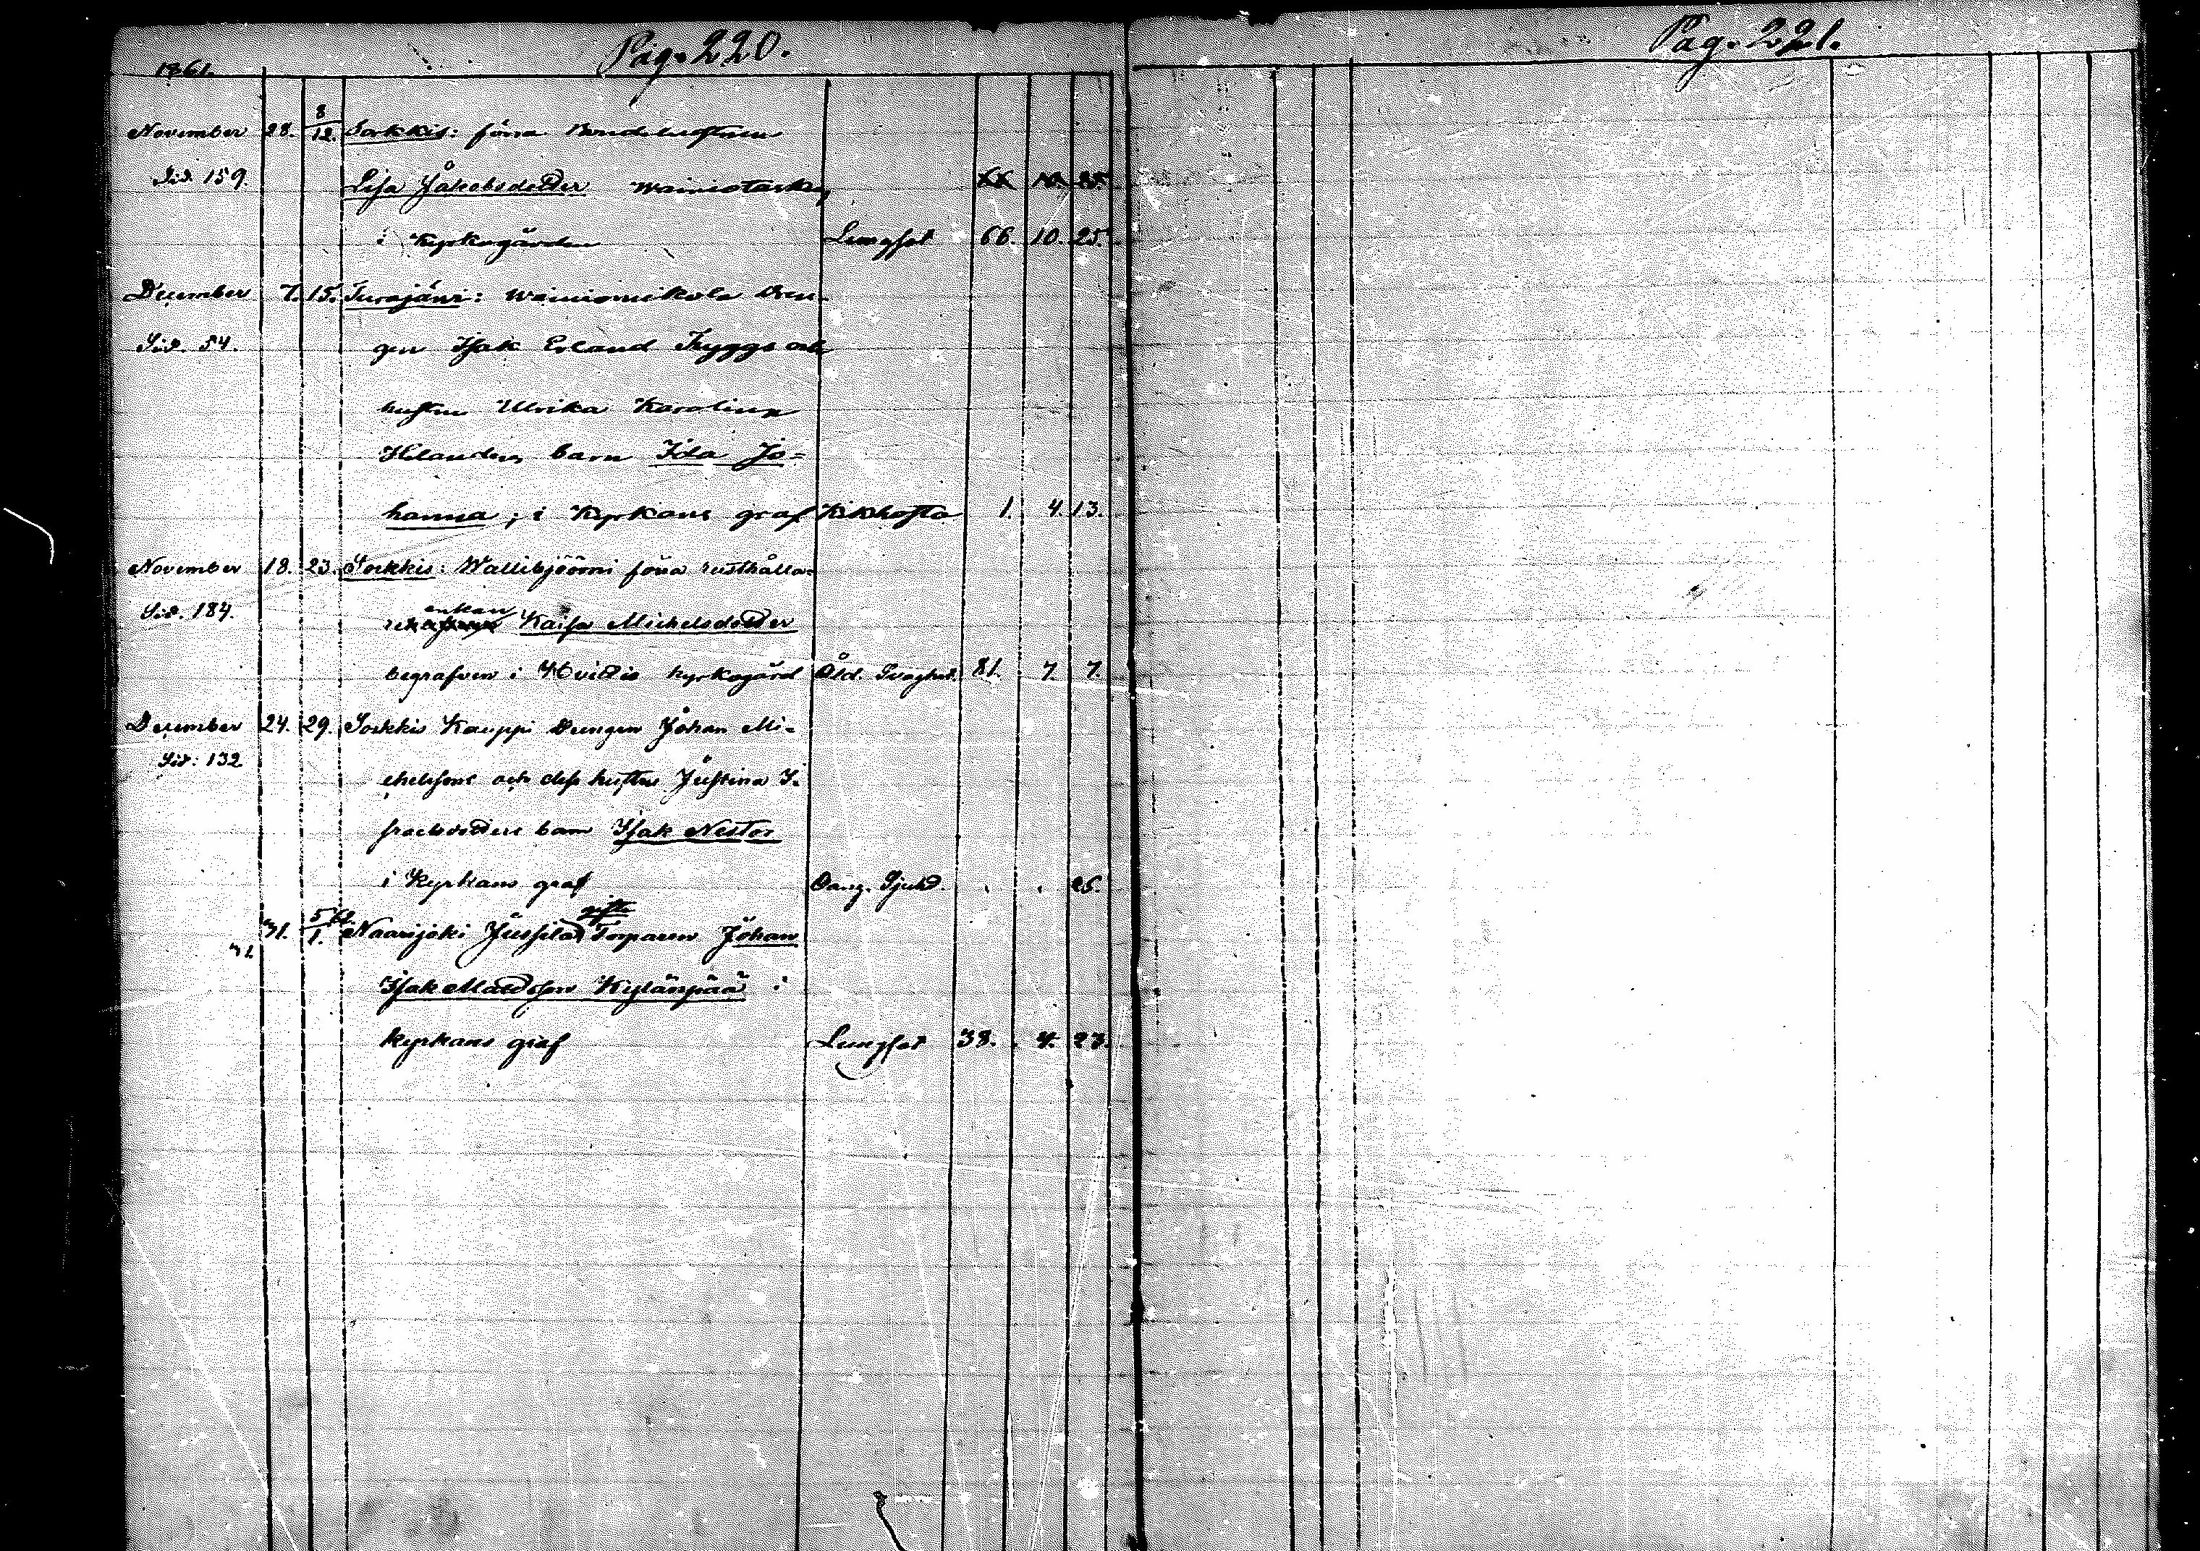 Pag. 220.
1861.
November 28. 8/12. Sorkkis: förra Bondehustrun
Sid. 159. Lisa Jakobsdotter Wainiotarky XX 10. 25.
i Kyrkogården Lungsot 66. 10. 25.
December 7. 15. Turajärvi: Wainiomikola Dren-
Sid. 54. gen Isak Erland Tryggs och
hustru Ulrika Karolina
Helanders barn Ida Jo=
hanna; i Kyrkans graf Kikhosta 1. 4. 13.
November 18. 23. Sorkkis: Wallibjöörni förra rusthålla=
Sid. 184. enkan Kaisa Michelsdotter
begrafven i Hvittis kyrkogård Åld. Svaghet. 81. 7. 7.
December 24. 29. Sorkkis Kauppi Drengen Johan Mi-
Sid. 132 chelssons och dess hustru Justina I.
sracsdotters barn Isak Nestor
i Kyrkans graf Oang. Sjukd. . . 25.
31. 5/1. 62. Naarijoki Jussila gifte Torparen Johan
Isak Mattsson Kylänpää i
kyrkans graf Lungsot 38. 4. 27.
Pag. 221.